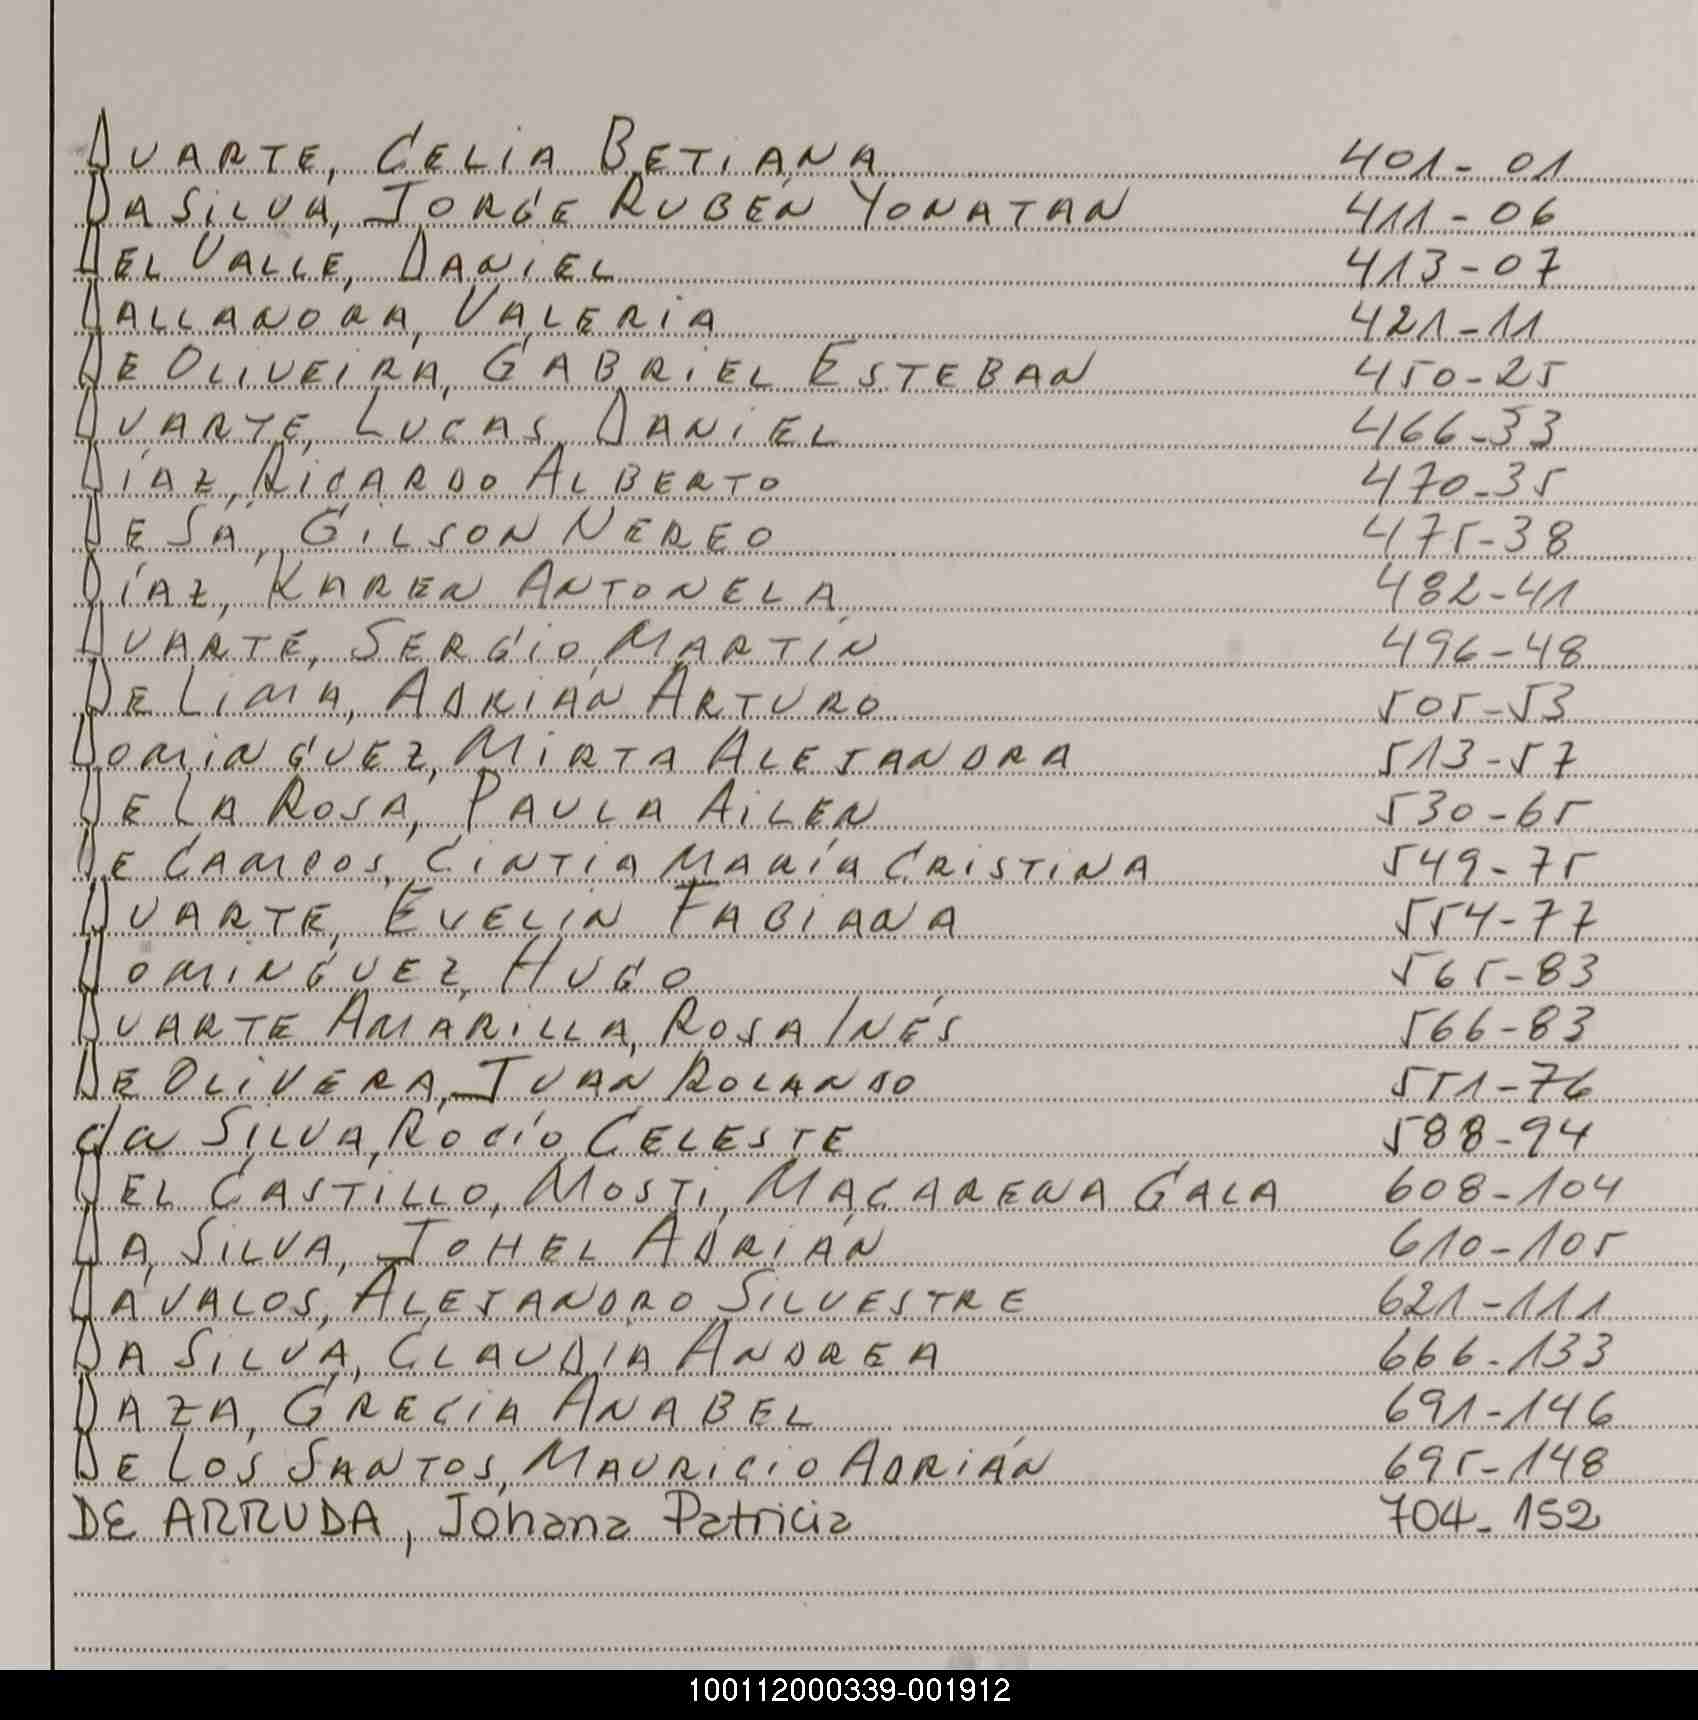 DUARTE, CELIA BETIANA 401-01
DA SILVA, JORGE RUBÉN YONATAN 411-06
DEL VALLE, DANIEL 413-07
DALLANORA, VALERIA 421-11
DE OLIVEIRA, GABRIEL ESTEBAN 450-25
DUARTE, LUCAS DANIEL 466-33
DÍAZ, RICARDO ALBERTO 470-35
DE SÁ, GILSON NEREO 475-38
DÍAZ, KAREN ANTONELA 482-41
DUARTE, SERGIO MARTÍN 496-48
DE LIMA, ADRIÁN ARTURO 505-53
DOMINGUEZ, MIRTA ALEJANDRA 513-57
DE LA ROSA, PAULA AILEN 530-65
DE CAMPOS, CINTIA MARÍA CRISTINA 549-75
DUARTE, EVELIN FABIANA 554-77
DOMINGUEZ, HUGO 565-83
DUARTE AMARILLA, ROSA INÉS 566-83
DE OLIVERA, JUAN ROLANDO 551-76
da SILVA, ROCÍO CELESTE 588-94
DEL CASTILLO, MOSTI, MACARENA GALA 608-104
DA SILVA, JOHEL ADRIÁN 610-105
DÁVALOS, ALEJANDRO SILVESTRE 621-111
DA SILVA, CLAUDIA ANDREA 666-133
DAZA, GRECIA ANABEL 691-146
DE LOS SANTOS, MAURICIO ADRIÁN 695-148
DE ARRUDA, Johana Patricia 704-152
100112000339-001912